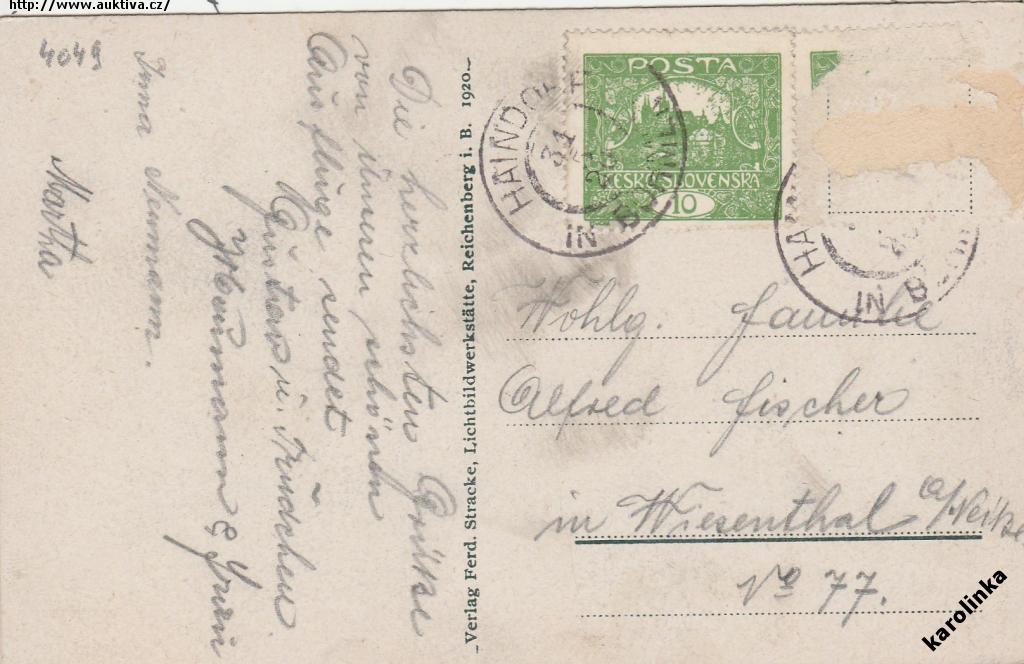 http://www.auktiva.cz/
4049
Die herzlichsten Grüße
von unserem schönen
Ausfluge sendet
Gustav u. Trudchen
Neumann &
Irma Neumann.
Martha
Verlag Ferd. Stracke, Lichtbildwerkstätte, Reichenberg i. B. 1920.
POSTA
ČESKO-SLOVENSKA
10
HAINDORF
IN BÖHMEN
31
HAI
IN B
Wohlg. Familie
Alfred Fischer
in Wiesenthal a/Neiße
No 77.
karolinka